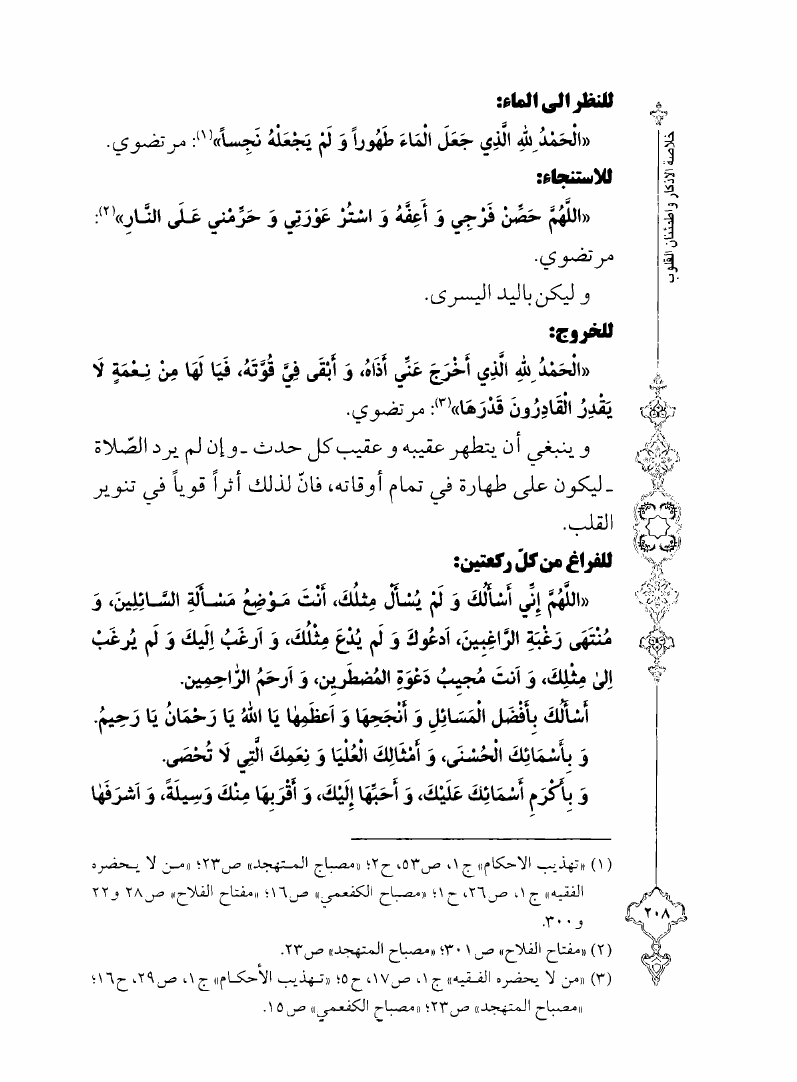 خلاصة الاذكار واطمئنان القلوب
للنظر الى الماء:
«الْحَمْدُ لِلهِ الَّذِي جَعَلَ الْمَاءَ طَهُوراً وَ لَمْ يَجْعَلْهُ نَجِساً»(١): مرتضوي.
للاستنجاء:
«اللَّهُمَّ حَصِّنْ فَرْجِي وَ أَعِفَّهُ وَ اسْتُرْ عَوْرَتِي وَ حَرِّمْني عَلَى النَّارِ»(٢):
مرتضوي.
و ليكن باليد اليسرى.
للخروج:
«الْحَمْدُ لِلهِ الَّذِي أَخْرَجَ عَنِّي أَذَاهُ، وَ أَبْقَى فِيَّ قُوَّتَهُ، فَيَا لَهَا مِنْ نِعْمَةٍ لَا
يَقْدِرُ الْقَادِرُونَ قَدْرَهَا»(٣): مرتضوي.
و ينبغي أن يتطهر عقيبه و عقيب كل حدث ـ و إن لم يرد الصّلاة
ـ ليكون على طهارة في تمام أوقاته، فانّ لذلك أثراً قوياً في تنوير
القلب.
للفراغ من كلّ ركعتين:
«اللَّهُمَّ إِنِّي أَسْأَلُكَ وَ لَمْ يُسْأَلْ مِثلُكَ، أَنْتَ مَوْضِعُ مَسْأَلَةِ السَّائِلِينَ، وَ
مُنْتَهَى رَغْبَةِ الرَّاغِبِينَ، اَدعُوكَ وَ لَم يُدْعَ مِثْلُكَ، وَ اَرغَبُ اِلَيكَ وَ لَم يُرغَبْ
اِلىٰ مِثْلِكَ، وَ اَنتَ مُجِيبُ دَعْوَةِ المُضطَرِين، وَ اَرحَمُ الرّاحِمِين.
أَسْأَلُكَ بِأَفْضَلِ الْمَسَائِلِ وَ أَنْجَحِهَا وَ اَعظَمِهٰا يَا اللهُ يَا رَحْمَانُ يَا رَحِيمُ.
وَ بِأَسْمَائِكَ الْحُسْنَى، وَ أَمْثَالِكَ الْعُلْيَا وَ نِعَمِكَ الَّتِي لَا تُحْصَى.
وَ بِأَكْرَمِ أَسْمَائِكَ عَلَيْكَ، وَ أَحَبِّهَا إِلَيْكَ، وَ أَقْرَبِهَا مِنْكَ وَسِيلَةً، وَ اَشرَفَهٰا
(١) «تهذيب الاحكام» ج١، ص٥٣، ح٢؛ «مصباح المتهجد» ص٢٣؛ «من لا يحضره
الفقيه» ج١، ص٢٦، ح١؛ «مصباح الكفعمي» ص١٦؛ «مفتاح الفلاح» ص٢٨ و٢٢
و٣٠٠.
(٢) «مفتاح الفلاح» ص٣٠١؛ «مصباح المتهجد» ص٢٣.
(٣) «من لا يحضره الفقيه» ج١، ص١٧، ح٥؛ «تهذيب الأحكام» ج١، ص٢٩، ح١٦؛
«مصباح المتهجد» ص٢٣؛ «مصباح الكفعمي» ص١٥.
٢٠٨